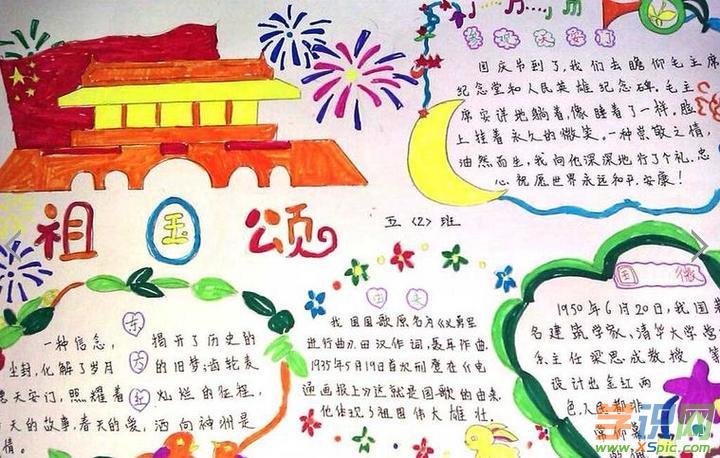 参观天安门
国庆节到了,我们去瞻仰毛主席
纪念堂和人民英雄纪念碑。毛主
席安详地躺着,像睡着了一样,脸
上挂着永久的微笑,一种崇敬之情,
油然而生,我向他深深地行了个礼,忠
心祝愿世界永远和平、安康!
祖国颂
五〈2〉班
东方红
一种信念, 揭开了历史的
尘封,化解了岁月 的旧梦;齿轮麦
天安门,照耀着 灿烂的征程,
天的故事,春天的爱,洒向神洲是
情。
国歌
我国国歌原名为《义勇军
进行曲》,田汉作词,聂耳作曲.
1935年5月19日首次刊登在《电
通画报上》,这就是国歌的由来,
他体现了祖国伟大雄壮.
国徽
1950年6月20日,我国著
名建筑学家,清华大学学
系主任梁思成教授
设计出金红两
色,
学识网
www.xspic.com